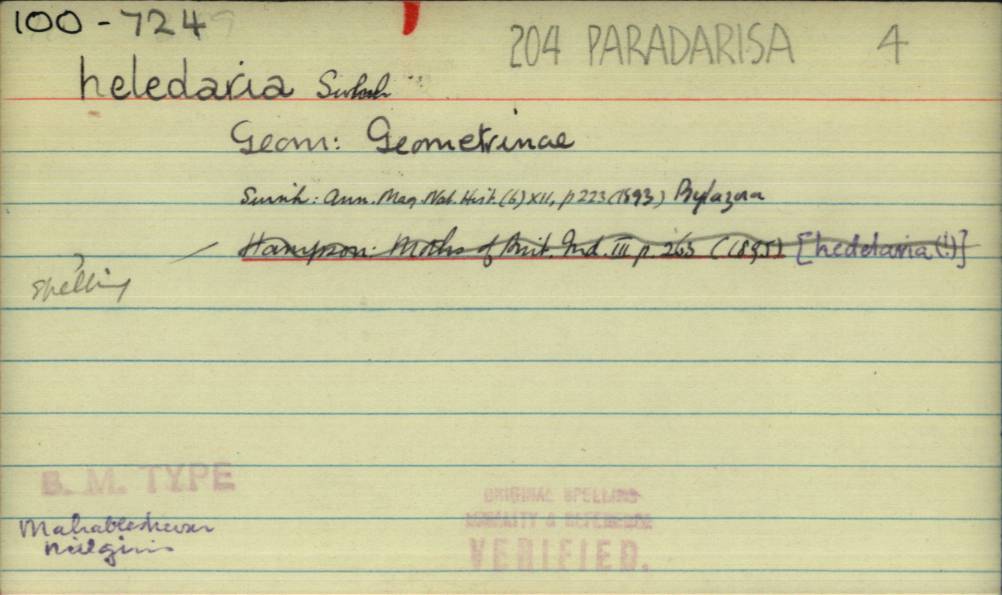 100 - 724
204 PARADARISA 4
heledaria Swinh
Geom: Geometrinae
Swinh: Ann. Mag. Nat. Hist. (6) XII, p 223 (1893) Bylazora
Hampson: Moths of Brit. Ind. III p. 263 (1895) [hedelaria (!)]
? spelling
B. M. TYPE
Mahableshwar
Nilgiris
ORIGINAL SPELLING
LOCALITY & REFERENCE
VERIFIED.